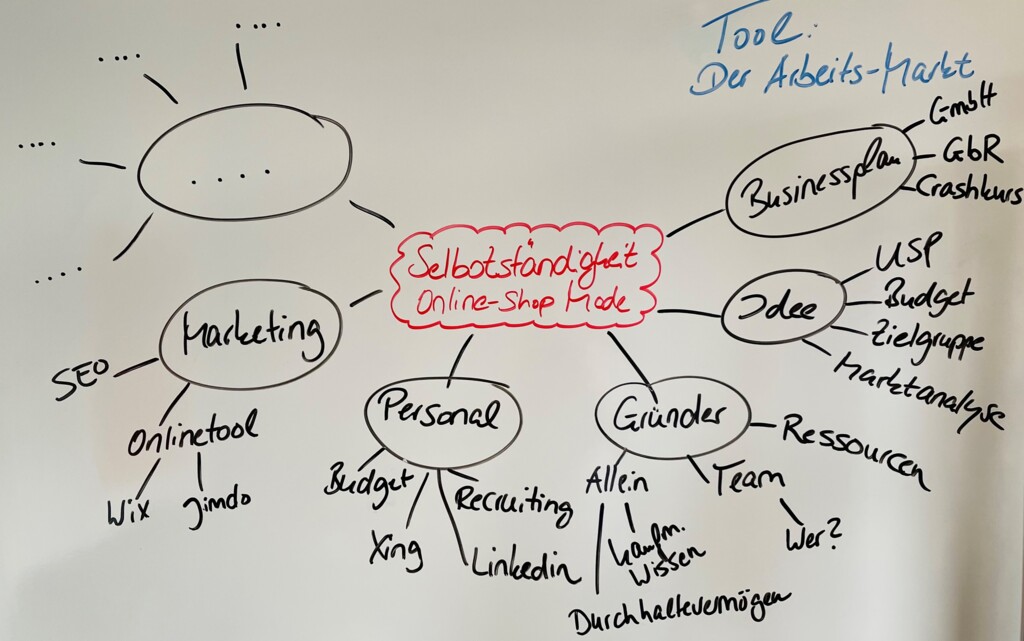 Tool:
Der Arbeits-Markt
....
....
....
....
....
Selbstständigkeit
Online-Shop Mode
Businessplan
GmbH
GbR
Crashkurs
Idee
USP
Budget
Zielgruppe
Marktanalyse
Gründer
Ressourcen
Team
Wer?
Allein
kaufm.
Wissen
Durchhaltevermögen
Personal
Budget
Xing
Recruiting
Linkedin
Marketing
SEO
Onlinetool
Wix
Jimdo